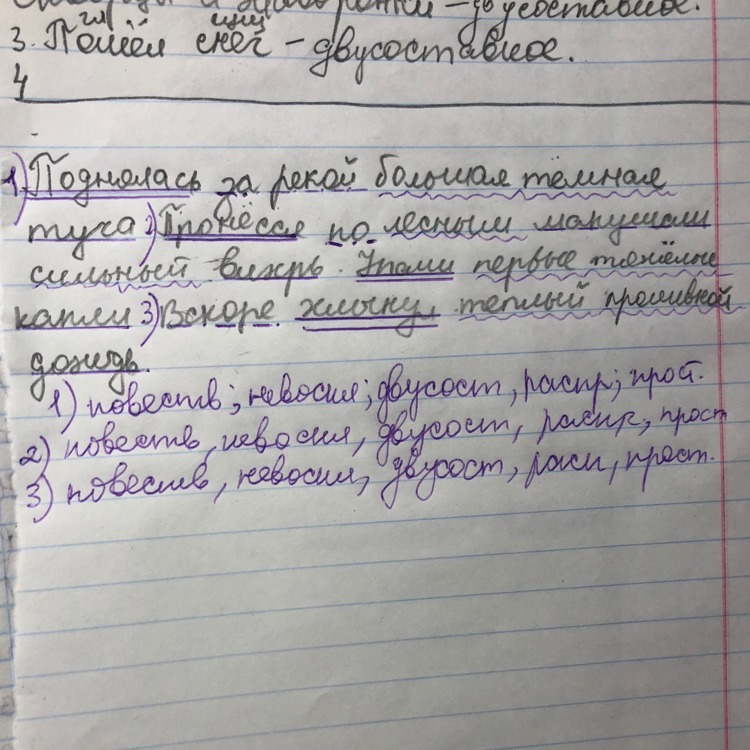 и - двусоставное.
гл сущ
3. Пошёл снег - двусоставное.
4
1) Поднялась за рекой большая тёмная
туча 2) Пронёсся по лесным макушкам
сильный вихрь. Упали первые тяжёлые
капли 3) Вскоре хлынул теплый проливной
дождь.
1) повеств; невоскл; двусост, распр; прост.
2) повеств, невоскл, двусост, распр, прост
3) повеств, невоскл, двусост, расп, прост.